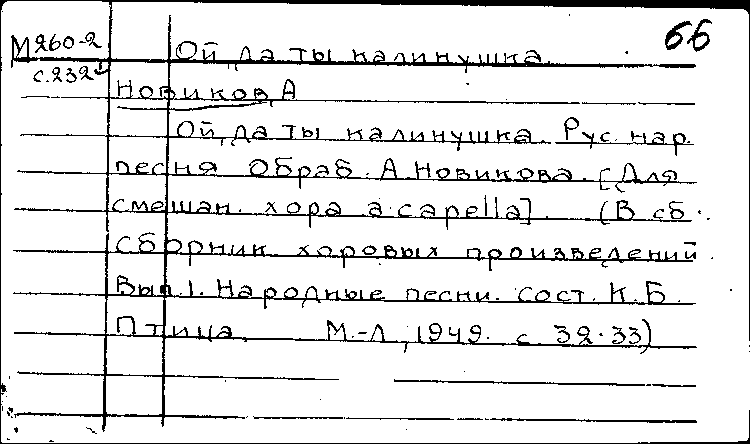 66
М260-2 Ой, да ты калинушка.
с.232
Новиков, А
Ой, да ты калинушка. Рус. нар.
песня Обраб. А. Новикова. [Для
смешан. хора a capella]. (В сб.
Сборник хоровых произведений.
Вып. 1. Народные песни. Сост. К. Б.
Птица. М.-Л, 1949. с 32-33)